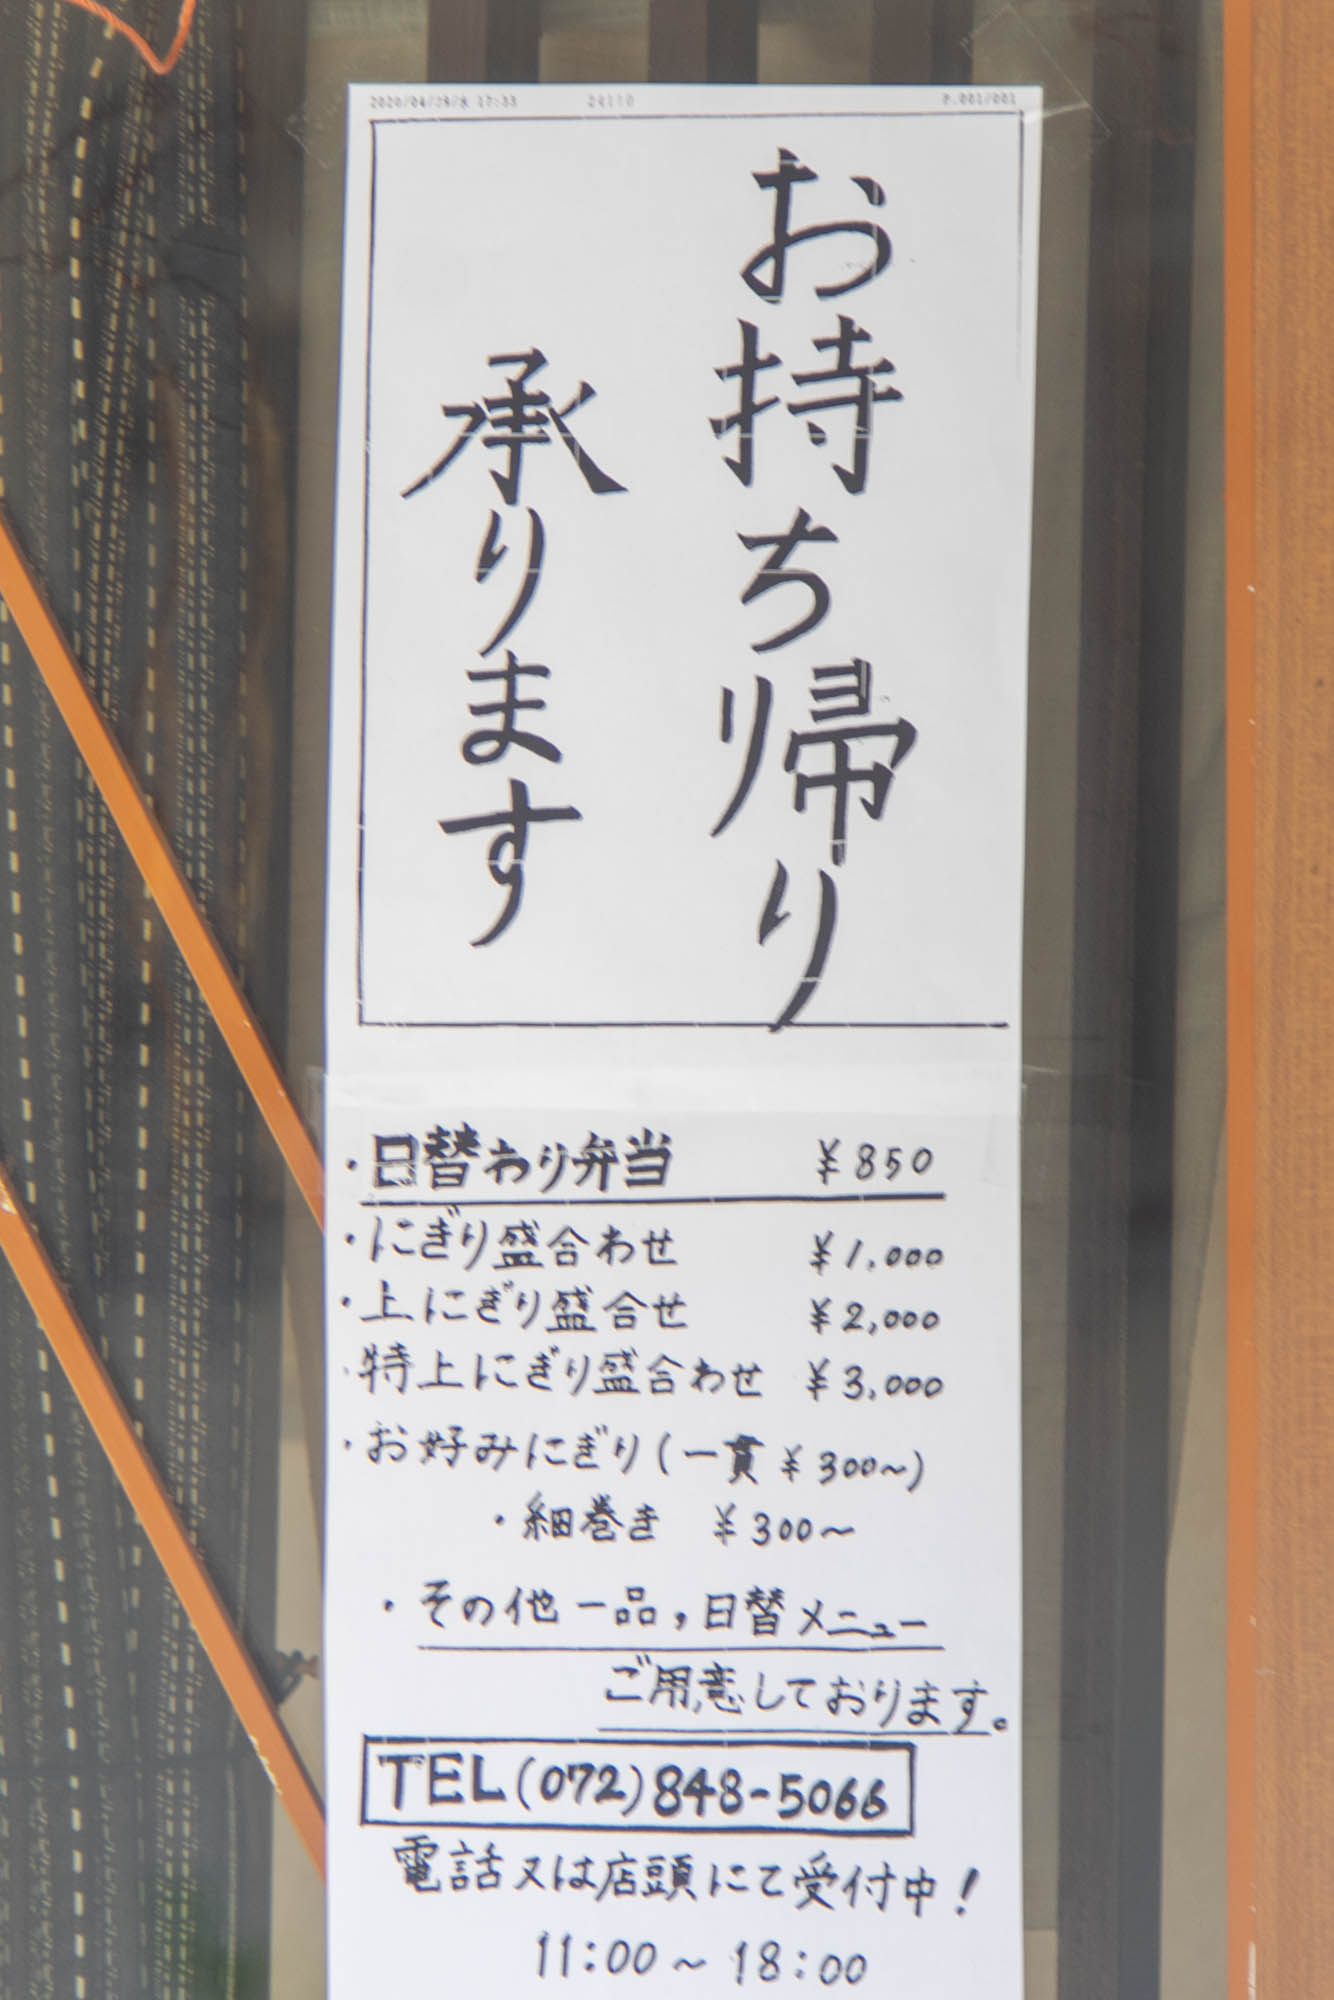 お持ち帰り
承ります
・日替わり弁当 ¥850
・にぎり盛合わせ ¥1,000
・上にぎり盛合せ ¥2,000
・特上にぎり盛合わせ ¥3,000
・お好みにぎり(一貫 ¥300~)
・細巻き ¥300~
・その他一品,日替メニュー
ご用意しております。
TEL(072)848-5066
電話又は店頭にて受付中!
11:00~18:00